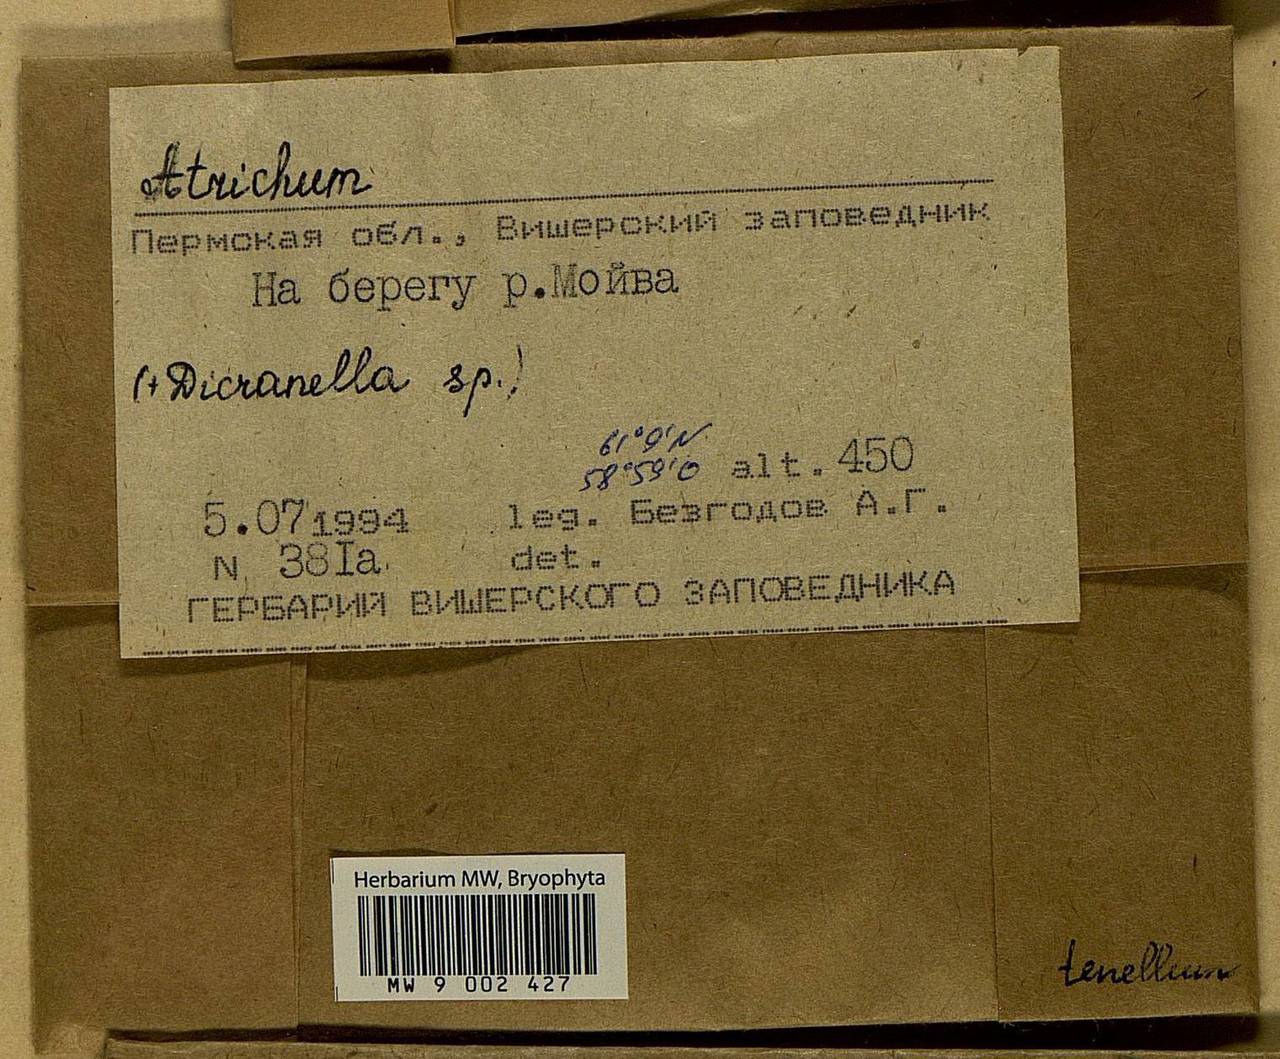 Atrichum
Пермская обл., Вишерский заповедник
На берегу р.Мойва
(+ Dicranella sp.)
61°9'N
58°59'O alt. 450
5.07 1994 leg. Безгодов А.Г.
N 38Ia det.
ГЕРБАРИЙ ВИШЕРСКОГО ЗАПОВЕДНИКА
Herbarium MW, Bryophyta
MW 9 002 427
tenellum